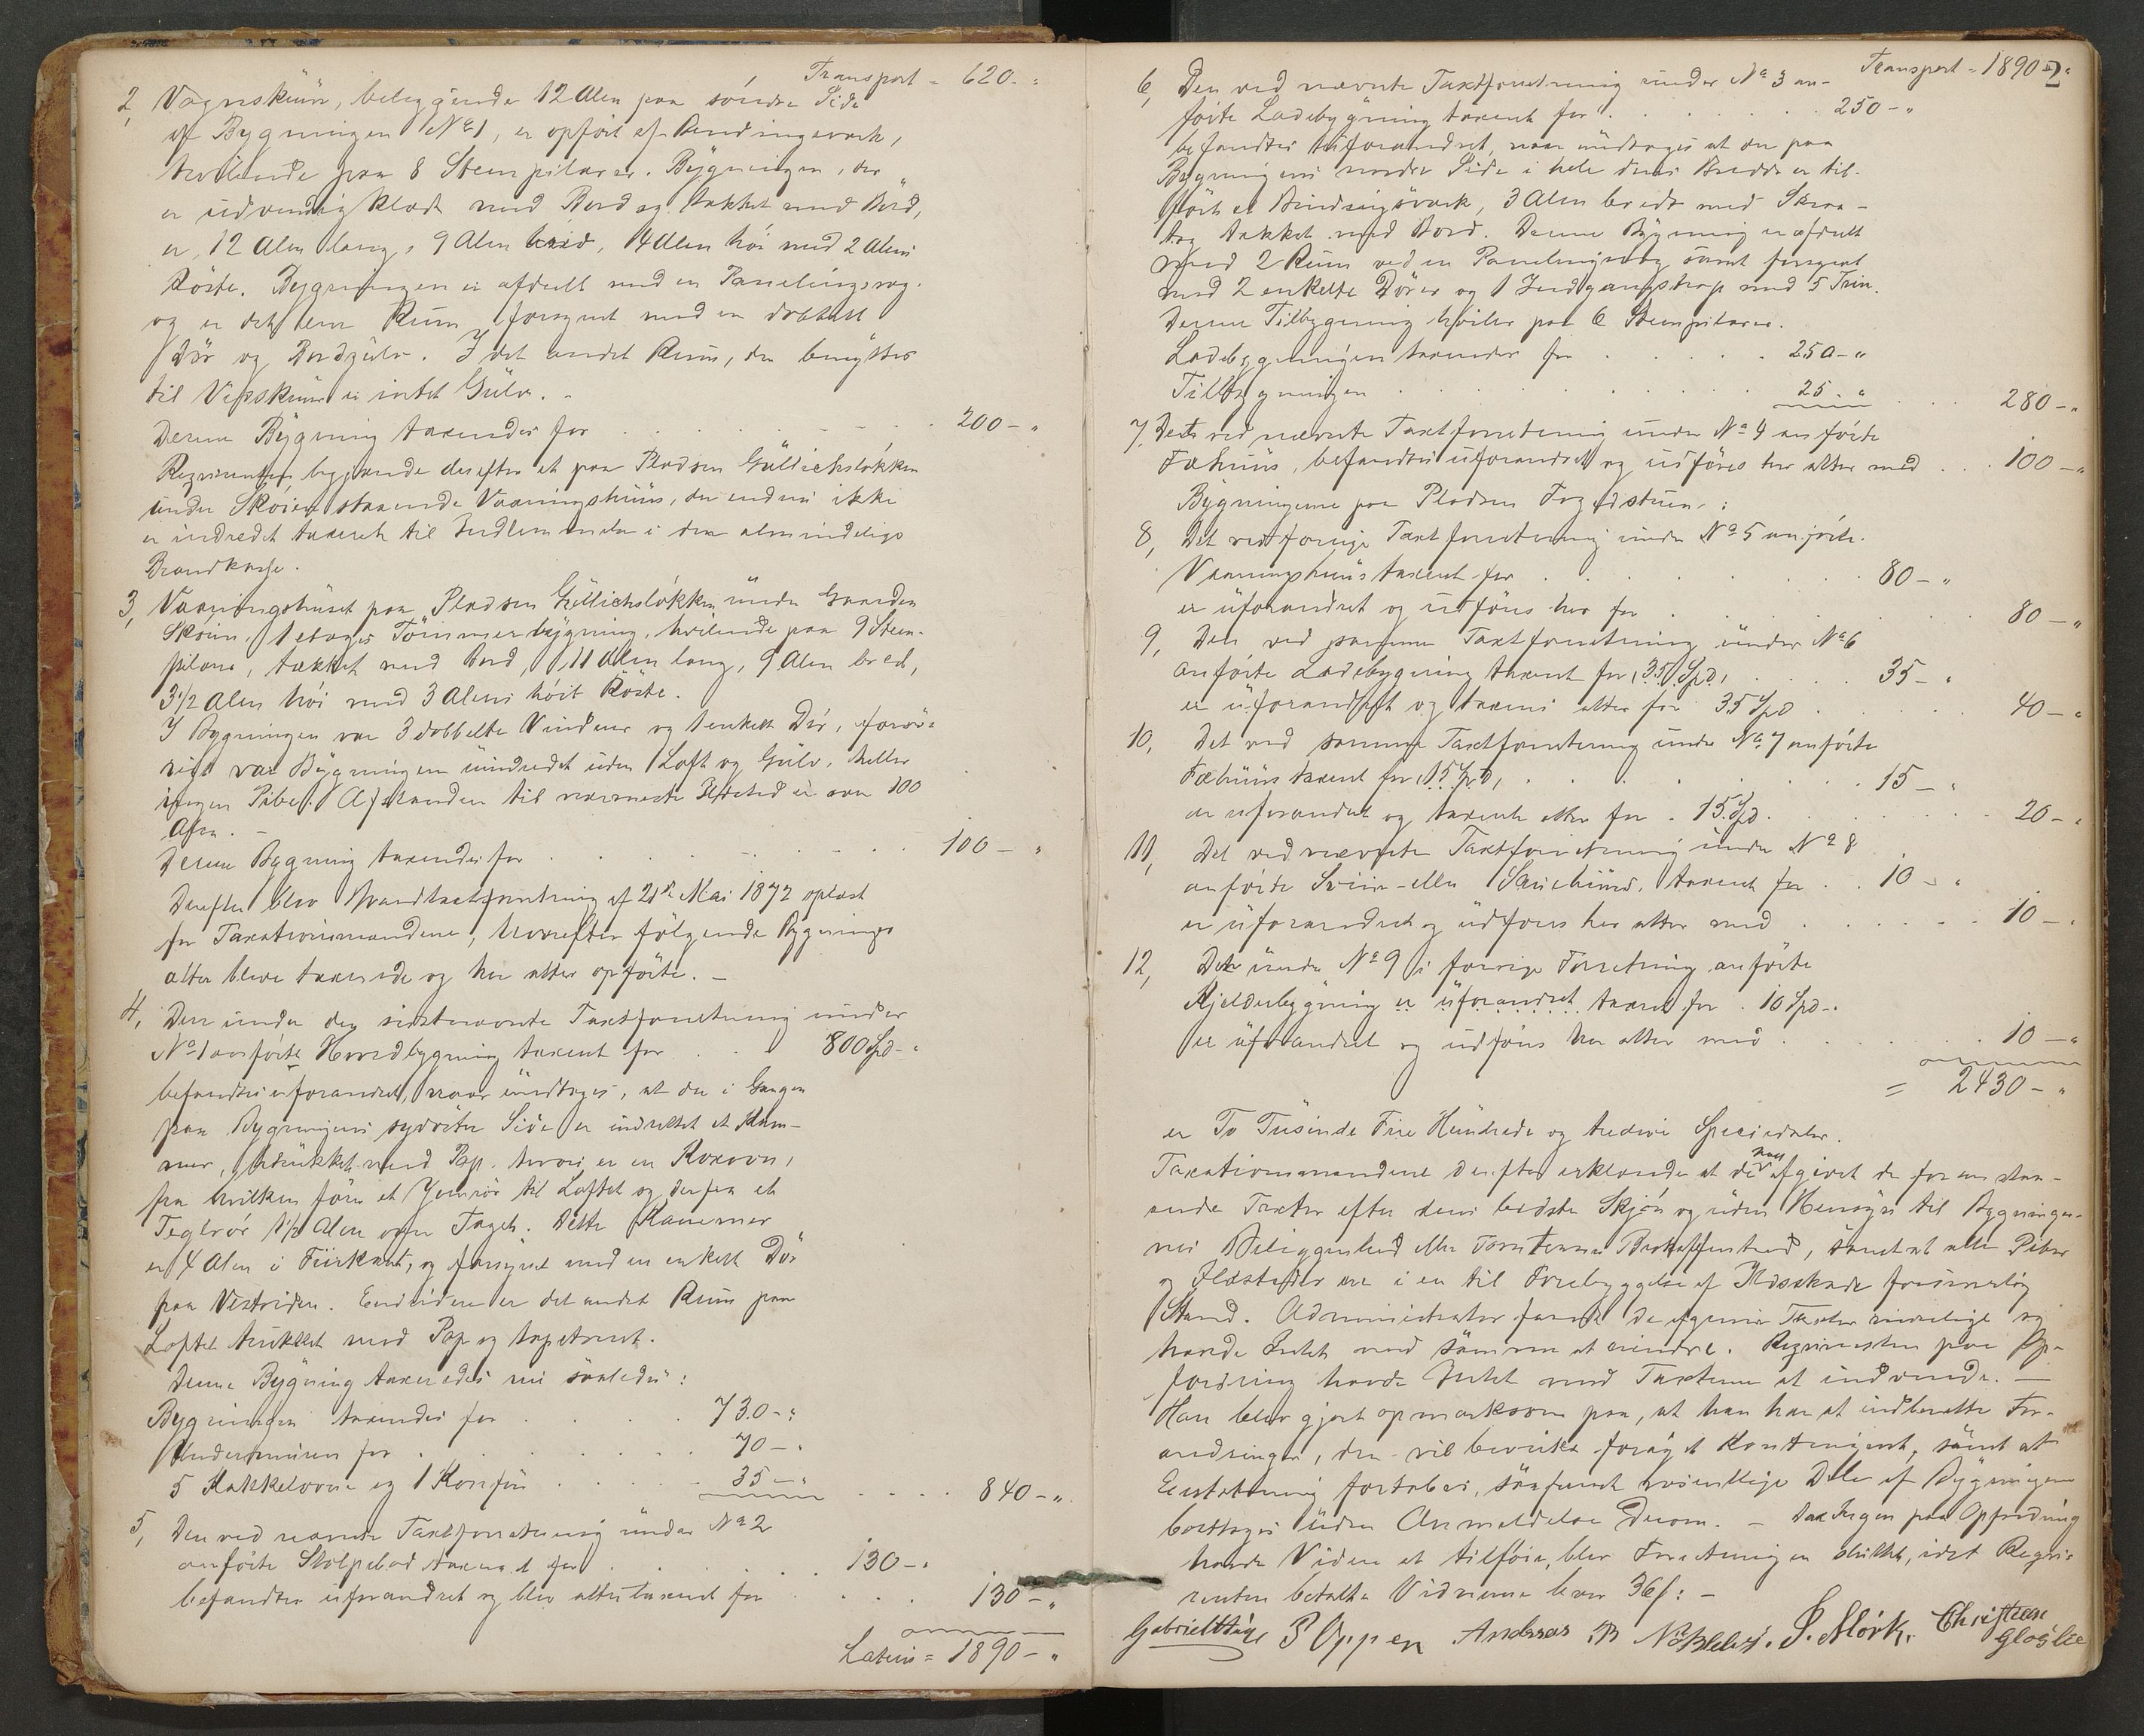 Transport = 620 - "
2, Vognskuur, beliggende 12 Alen paa søndre Side
af Bygningen No 1, er opført af Bindingsverk,
hvilende paa 8 Steenpilarer. Bygningen, der
er udvendig klædt med Bord og tækket med Bord,
er 12 Alen lang, 9 Alen bred, 4 Alen høi med 2 Alens
Røste. Bygningen er afdeelt med en Panelingsvæg.
og er det ene Rum forsynet med en dobbelt
Dør og Bordgulv. I det andet Rum, der benyttes
til Vedskuur er intet Gulv. -
Denne Bygning taxeredes for . . . . 200 - "
Rekvirenten begjærede derefter et paa Pladsen Gullichsløkken
under Skøien staaende Vaaningshuus, der endnu ikke
er indredet taxeret til Indlemmelse i den almindelige
Brandkasse.
3, Vaaningshuset paa Pladsen Gullichsløkken under Gaarden
Skøien, 1 etages Tømmerbygning, hvilende paa 9 Steen-
pilarer, tækket med Bord, 11 Alen lang, 9 Alen bred,
3 1/2 Alen høi med 3 Alens høit Røste.
I Bygningen var 3 dobbelte Vinduer og 1 enkelt Dør, forøv-
rigt var Bygningen uindredet uden Loft og Gulv, heller
ingen Pibe. Afstanden til nærmeste Ildsted er over 100
Alen. -
Denne Bygning taxeredes for . . . . 100 - "
Derefter blev Brandtaxtforretning af 21de Mai 1872 oplæst
for Taxationsmændene, hvorefter følgende Bygninger
atter bleve taxerede og her atter opførte. -
4, Den under den sidstnævnte Taxtforretning under
No 1 anførte Hovedbygning taxeret for . . 800 Spd - "
befandtes uforandret, naar undtages, at der i Gangen
paa Bygningens sydøstre Side er indrettet et Kam-
mer, betrukket med Pap, hvori er en Kakovn,
fra hvilken fører et Jernrør til Loftet og derfra et
Teglrør 1 1/2 Alen over Taget. Dette Kammer
er 4 Alen i Fiirkant, og forsynet med en enkelt Dør
paa Vestsiden. Endvidere er det andet Rum paa
Loftet trukket med Pap og tapetseret.
Denne Bygning taxeredes nu saaledes:
Bygningen taxeredes for . . . . 730 - "
Undermuren for . . . . 70 - "
5 Kakkelovne og 1 Komfur . . . . 35 - " . . . . 840 - "
5, Den ved nævnte Taxtforretning under No 2
anførte Stolpebod taxeret for . . . . 130 - "
befandtes uforandret og blev atter taxeret for . . . . 130 - "
Lateris = 1890 - "
Transport = 1890 - "
2
6, Den ved nævnte Taxtforretning under No 3 an-
førte Ladebygning taxeret for . . . . 250 - "
befandtes uforandret, naar undtages at der paa
Bygningens nordre Side i hele dens Bredde er til-
ført et Bindingsværk, 3 Alen bredt med Skraa-
tag tækket med Bord. Denne Bygning er afdeelt
med 2 Rum ved en Panelingsvæg samt forsynet
med 2 enkelte Dører og 1 Indgangstrap med 5 Trin.
Denne Tilbygning hviler paa 6 Steenpilarer.
Ladebygningen taxeredes for . . . . 250 - "
Tilbygningen . . . . 25 - " . . . . 280 - "
7, Det ved nævnte Taxtforretning under No 4 anførte
Fæhuus, befandtes uforandret og udføres her atter med . . . 100 - "
Bygningerne paa Pladsen Fogedstuen:
8, Det ved forrige Taxtforretning under No 5 anførte
Vaaningshuus taxeret for . . . . 80 - "
er uforandret og udføres her for . . . . 80 - "
9, Den ved samme Taxtforretning under No 6
anførte Ladebygning taxeret for, 35 Spd, . . . . 35 - "
er uforandret og taxeres atter for 35 Spd . . . . 40 - "
10, Det ved samme Taxtforretning under No 7 anførte
Fæhuus taxeret for, 15 Spd, . . . . 15 - "
er uforandret og taxeret atter for . 15 Spd. . . . . 20 - "
11, Det ved nævnte Taxtforretning under No 8
anførte Sviin- eller Sauehuus, taxeret for . . 10 - "
er uforandret og udføres her atter med . . . . 10 - "
12, Den under No 9 i forrige Forretning anførte
Kjelderbygning er uforandret taxeret for . 10 Spd -.
er uforandret og udføres her atter med . . . . 10 - "
= 2430 - "
er To Tusinde Fire Hundrede og tredive Speciedaler.
Taxationsmændene derefter erklærede at de have afgivet de foranstaa-
ende Taxter efter deres bedste Skjøn og uden Hensyn til Bygninger-
nes Beliggenhed eller Tomternes Beskaffenhed, samt at alle Piber
og Ildsteder ere i en til Forebyggelse af Ildsskade forsvarlig
Stand. Administrator fandt de afgivne Taxter rimelige og
havde Intet mod samme at erindre. Rekvirenten paa Op-
fordring havde Intet mod Taxterne at indvende. -
Han blev gjort opmærksom paa, at han har at indberette For-
andringer, der vil bevirke forøget Kontingent, samt at
Erstatning fortabes, saafremt væsentlige Dele af Bygningerne
borttages uden Anmeldelse derom. - Da Ingen paa Opfordring
havde Videre at tilføie, blev Forretningen sluttet, idet Rekvi-
renten betalte Vidnerne hver 36 s: -
P Oppen Andreas S. Mørk. Christian